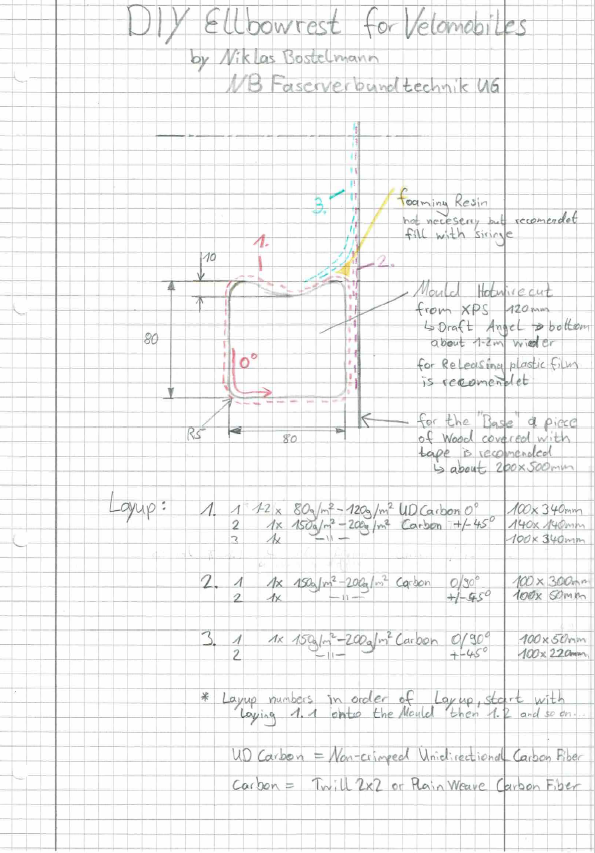 DIY Ellbowrest for Velomobiles
by Niklas Bostelmann
NB Faserverbundtechnik UG
3.
foaming Resin
not necesery but recomendet
fill with siringe
1.
2.
10
Mould Hotwirecut
from XPS 120mm
↳ Draft Angel → bottom
about 1-2m wieder
for Releasing plastic film
is recomendet
80
0°
R5
80
for the "Base" a piece
of Wood covered with
tape is recomended
↳ about 200x500mm
Layup: 1. 1 1-2x 80g/m²-120g/m² UD Carbon 0° 100x340mm
2 1x 150g/m²-200g/m² Carbon +/-45° 140x140mm
3 1x -"- 100x340mm
2. 1 1x 150g/m²-200g/m² Carbon 0/90° 100x300mm
2 1x -"- +/-45° 100x50mm
3. 1 1x 150g/m²-200g/m² Carbon 0/90° 100x50mm
2 -"- +-45° 100x220mm
* Layup numbers in order of Layup, start with
laying 1.1 onto the Mould then 1.2 and so on...
UD Carbon = Non-crimped Unidirectional Carbon Fiber
Carbon = Twill 2x2 or Plain Weave Carbon Fiber